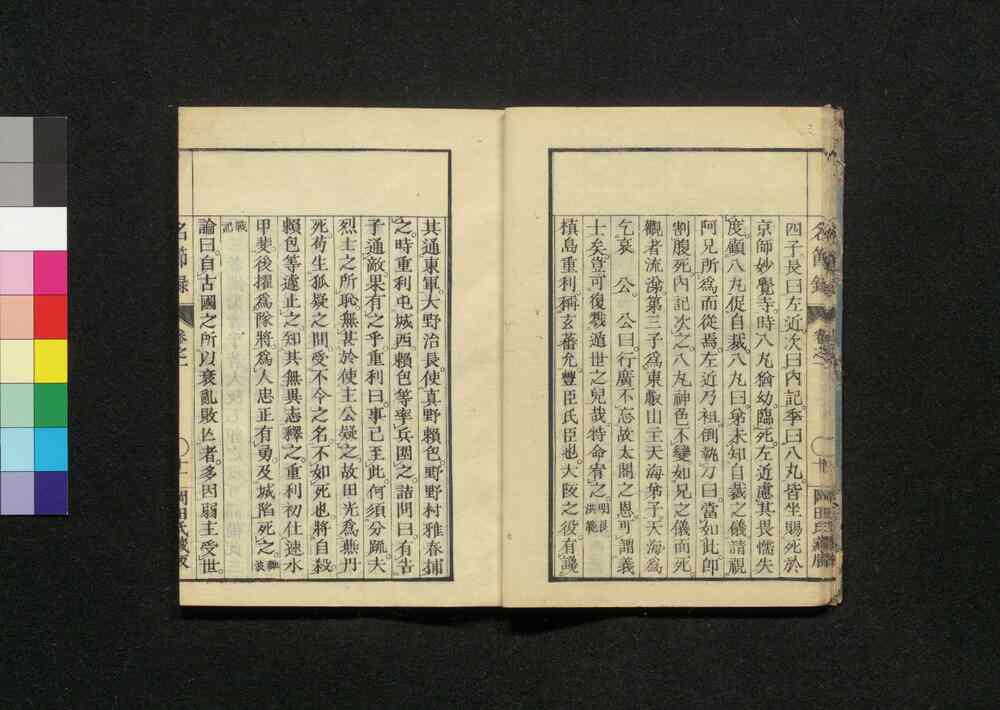 四子長曰左近次曰內記季曰八丸皆坐賜死於
京師妙覺寺。時八丸猶幼。臨死。左近慮其畏懦失
度。顧八丸促自裁。八丸曰。弟未知自裁之儀。請視
阿兄所爲而從焉。左近乃祖倒執刀曰。當如此。卽
割腹死。內記次之。八丸神色不變。如兄之儀而死。
觀者流涕。第三子爲東叡山主天海弟子。天海爲
乞哀 公。 公曰。行廣不忘故太閤之恩。可謂義
士矣。豈可復戮遁世之兒哉。特命宥之。明良洪範
槙島重利。稱玄蕃允。豐臣氏臣也。大阪之役。有讒
其通東軍。大野治長。使真野賴包野野村雅春捕
之。時重利屯城西。賴包等率兵圍之。詰問曰。有告
子通敵。果有之乎。重利曰。事已至此。何須分疏。夫
烈士之所恥。無甚於使主公疑之。故田光爲燕丹
死。苟生孤疑之間。受不令之名。不如死也。將自殺
賴包等遽止之。知其無異志。釋之。重利初仕速水
甲斐。後擢爲隊將。爲人忠正有勇。及城陷死之。難波
戰記
論曰。自古國之所以衰亂敗亡者。多因弱主受世。
名節錄 卷之一 岡田氏藏版